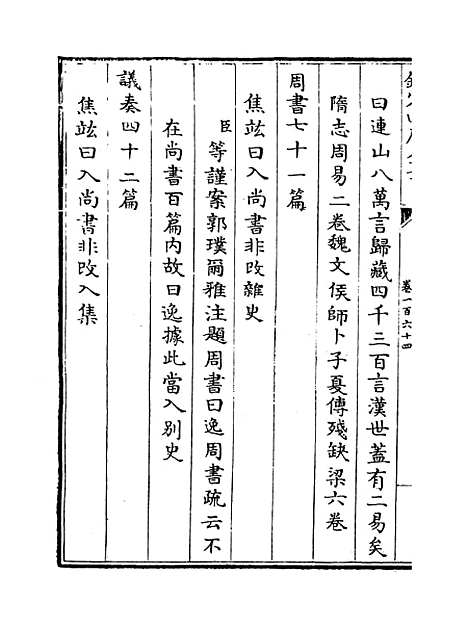 卷一百六十四
曰連山八萬言歸藏四千三百言漢世蓋有二易矣
隋志周易二卷魏文侯師卜子夏傳殘缺梁六卷
周書七十一篇
焦竑曰入尚書非改雜史
臣等謹案郭璞爾雅注題周書曰逸周書疏云不
在尚書百篇內故曰逸據此當入別史
議奏四十二篇
焦竑曰入尚書非改入集